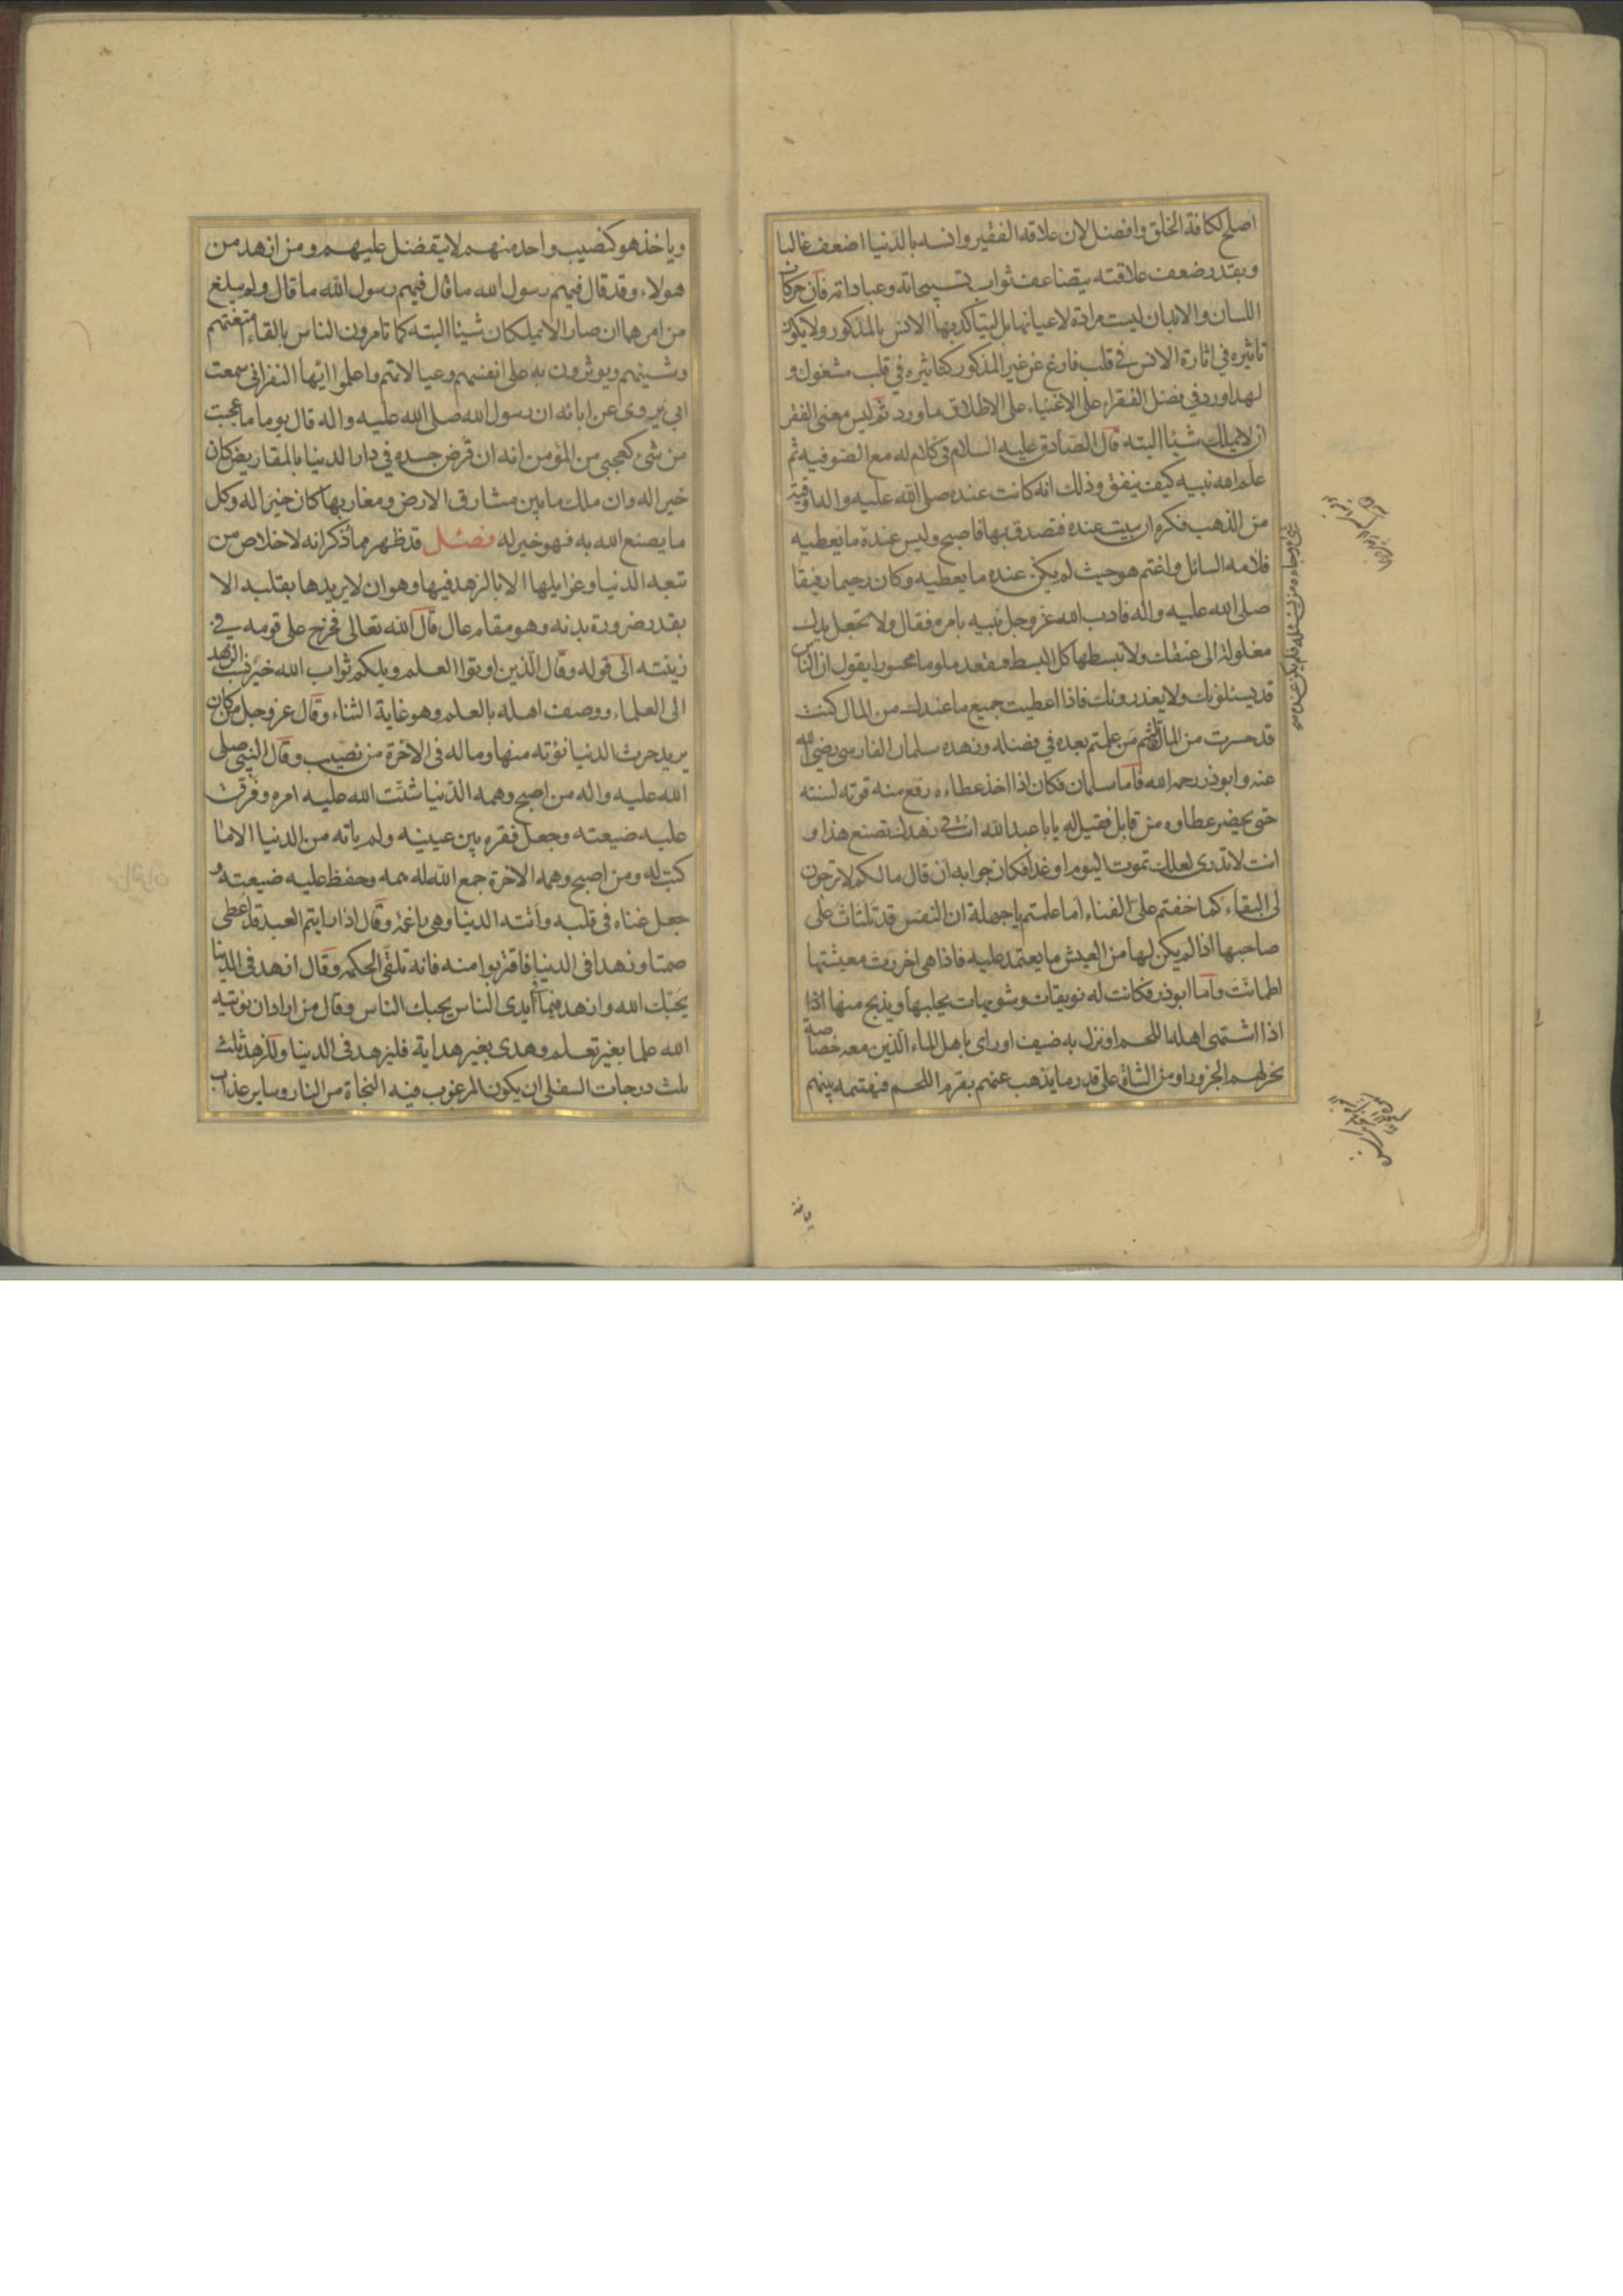 اصلح لكافة الخلق وافضل لان علاقه الفقير وانسه بالدنيا اضعف غالبا
وبقدر ضعف علاقته يتضاعف ثواب تسبيحاته وعباداته فان حركات
اللسان والابدان ليست مرادة لاعيانها بل ليتاكد بها الانس بالمذكور ولا يكون
تاثيره في اثارة الانس في قلب فارغ عن غير المذكور كتاثيره في قلب مشغول و
لهذا ورد في فضل الفقراء على الاغنياء على الاطلاق ما ورد ثم ليس معنى الفقر
ان لا يملك شيئا البته قال الصادق عليه السلام في كلام له مع الصوفيه ثم
علم الله نبيه كيف ينفق وذلك انه كانت عنده صلى الله عليه واله اوقية
من الذهب فكره ان يبيت عنده فتصدق بها فاصبح وليس عنده ما يعطيه
فلامه السائل واغتم هو حيث لم يكن عنده ما يعطيه وكان رحيما رفيقا
صلى الله عليه واله فادب الله عز وجل نبيه بامره فقال ولا تجعل يدك
مغلولة الى عنقك ولا تبسطها كل البسط فتقعد ملوما محسورا يقول ان الناس
قد يسئلونك ولا يعذرونك فاذا اعطيت جميع ما عندك من المال كنت
قد حسرت من المال ثم من علمتم بعده في فضله وزهده سلمان الفارسي رضي الله
عنه وابوذر رحمه الله فاما سلمان فكان اذا اخذ عطاءه رفع منه قوته لسنته
حتى يحضر عطاوه من قابل فقيل له يا با عبد الله انت في زهدك تصنع هذا و
انت لا تدرى لعلك تموت اليوم او غدا فكان جوابه ان قال ما لكم لا ترجون
لى البقاء كما خفتم على الفناء اما علمتم يا جهلة ان النفس قد تلتاث على
صاحبها اذا لم يكن لها من العيش ما يعتمد عليه فاذا هى احرزت معيشتها
اطمانت واما ابوذر فكانت له نويقات وشويهات يحلبها ويذبح منها اذا
اذا اشتهى اهله اللحم او نزل به ضيف او راى باهل الماء الذين معه خصاصة
نحر لهم الجزور او من الشاة على قدر ما يذهب عنهم بقرم اللحم فيقتسمه بينهم
وياخذ هو كنصيب واحد منهم لا يتفضل عليهم ومن ازهد من
هولاء وقد قال فيهم رسول الله ما قال فيهم رسول الله ما قال ولم يبلغ
من امرهما ان صارا لا يملكان شيئا البته كما تامرون الناس بالقاء امتعتهم
وشيئهم ويوثرون به على انفسهم وعيالاتهم واعلموا ايها النفر انى سمعت
ابى يروى عن ابائه ان رسول الله صلى الله عليه واله قال يوما ما عجبت
من شيء كعجبى من المؤمن انه ان قرض جسده في دار الدنيا بالمقاريض كان
خيرا له وان ملك ما بين مشارق الارض ومغاربها كان خيرا له وكل
ما يصنع الله به فهو خير له فصل قد ظهر مما ذكر انه لا خلاص من
تبعه الدنيا وغوايلها الا بالزهد فيها وهو ان لا يريدها بقلبه الا
بقدر ضرورة بدنه وهو مقام عال قال الله تعالى فخرج على قومه في
زينته الى قوله وقال الذين اوتوا العلم ويلكم ثواب الله خير فنسب الزهد
الى العلماء ووصف اهله بالعلم وهو غاية الثناء وقال عز وجل من كان
يريد حرث الدنيا نؤته منها وما له فى الاخرة من نصيب وقال النبي صلى
الله عليه واله من اصبح وهمه الدنيا شتت الله عليه امره وفرق
عليه ضيعته وجعل فقره بين عينيه ولم ياته من الدنيا الا ما
كتب له ومن اصبح وهمه الاخرة جمع الله له همه وحفظ عليه ضيعته و
جعل غناه فى قلبه واتته الدنيا وهى راغمة وقال اذا رايتم العبد قد اعطى
صمتا وزهدا فى الدنيا فاقتربوا منه فانه تلقى الحكمه وقال ازهد فى الدنيا
يحبك الله وازهد فيما ايدى الناس يحبك الناس وقال من اراد ان يؤتيه
الله علما بغير تعلم وهدى بغير هداية فليزهد فى الدنيا وللزهد ثلث
ثلث درجات السفلى ان يكون المرغوب فيه النجاة من النار وساير عذاب